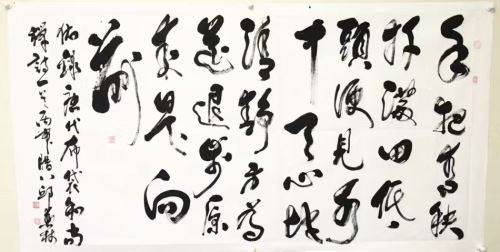 手把青秧
插滿田低
頭便見水
中天心地
清静方為
道退步原
来是向
前
錄唐代布袋和尚
禪詩一首 邱 林